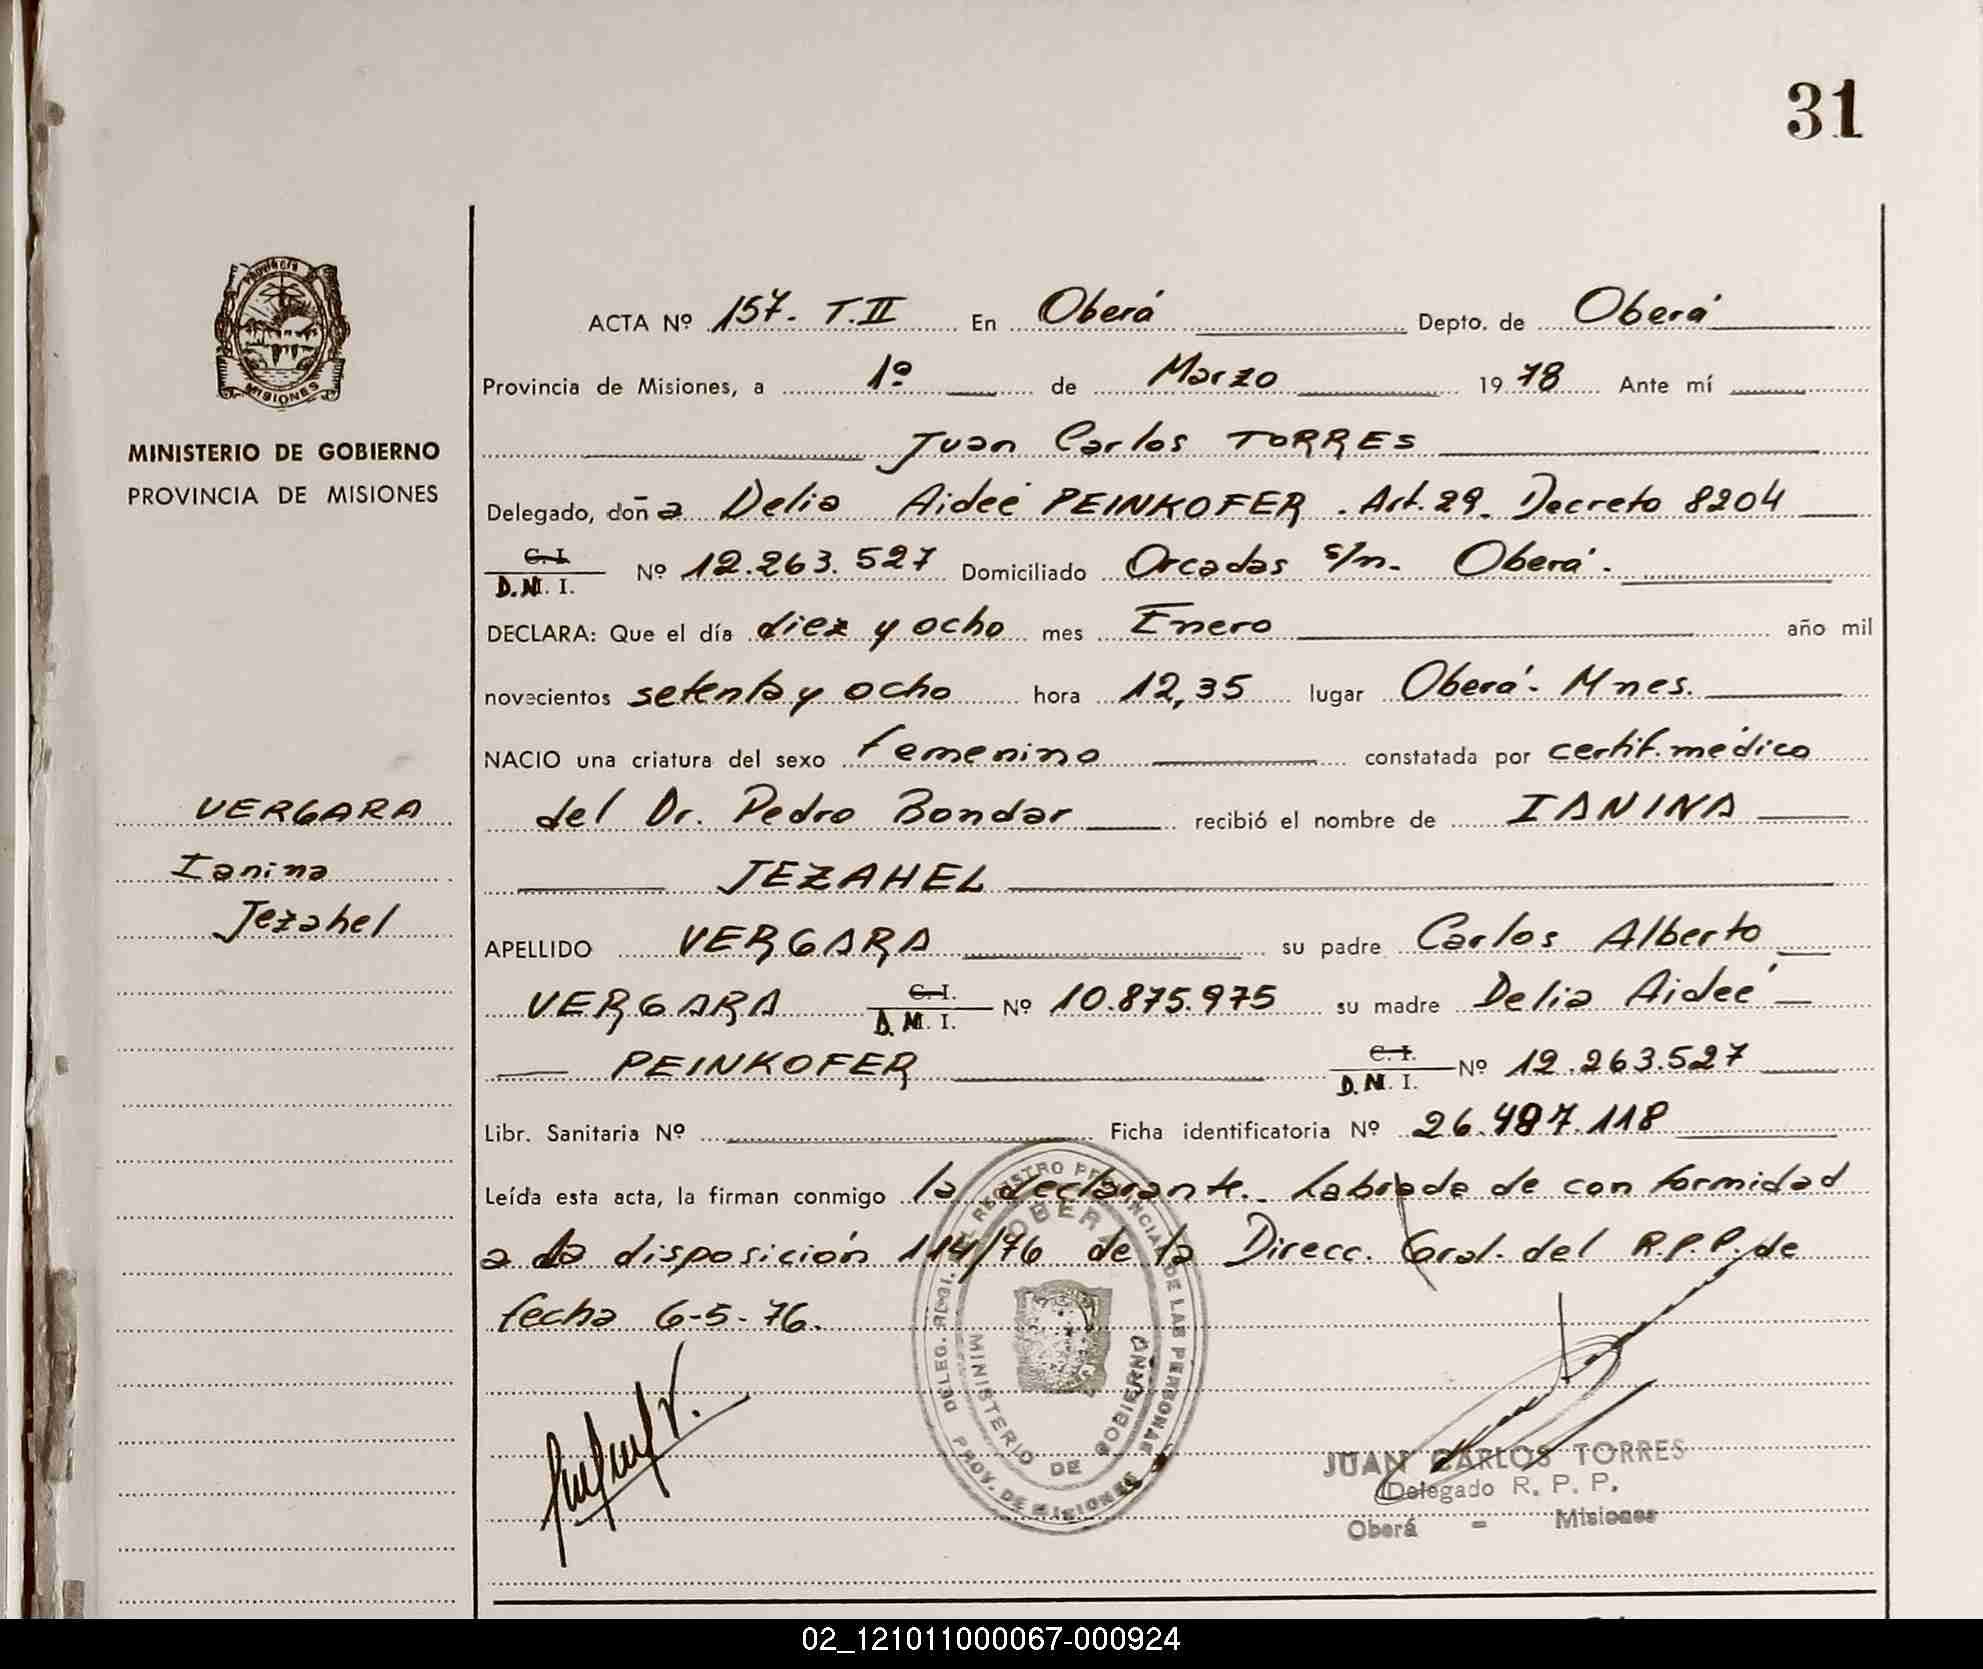 31
ACTA Nº 157. T.II En Oberá Depto. de Oberá
Provincia de Misiones, a 1º de Marzo 1978 Ante mí
Juan Carlos TORRES
MINISTERIO DE GOBIERNO
PROVINCIA DE MISIONES
Delegado, doña Delia Aideé PEINKOFER. Art. 29. Decreto 8204
C. I.
D.N. I. Nº 12.263.527 Domiciliado Orcadas s/n. Oberá.
DECLARA: Que el día diez y ocho mes Enero año mil
novecientos setenta y ocho hora 12,35 lugar Oberá. Mnes.
NACIO una criatura del sexo femenino constatada por certif. médico
VERGARA
Ianina
Jezahel
del Dr. Pedro Bondar recibió el nombre de IANINA
JEZAHEL
APELLIDO VERGARA su padre Carlos Alberto
VERGARA C. I. D. N. I. Nº 10.875.975 su madre Delia Aideé
PEINKOFER C. I. D. N. I. Nº 12.263.527
Libr. Sanitaria Nº Ficha identificatoria Nº 26.487.118
Leída esta acta, la firman conmigo la declarante. Labrada de conformidad
a la disposición 114/76 de la Direcc. Gral. del R.P.P. de
fecha 6-5-76.
REGISTRO PROVINCIAL DE LAS PERSONAS
OBERA
MINISTERIO DE GOBIERNO
PROV. DE MISIONES
JUAN CARLOS TORRES
Delegado R. P. P.
Oberá - Misiones
02_121011000067-000924